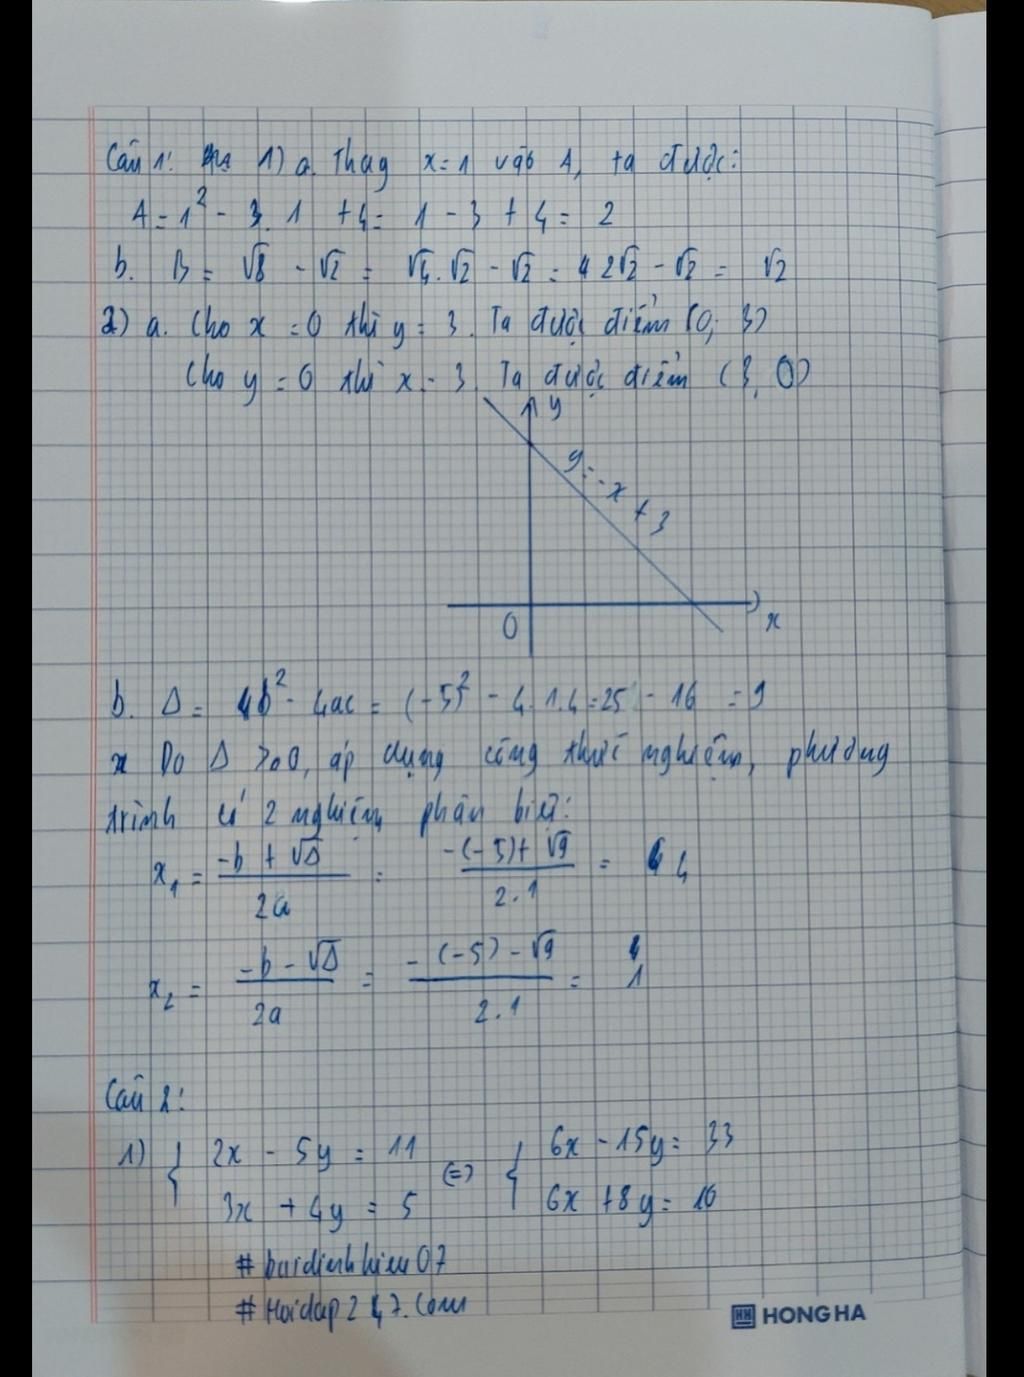 Câu 1: 1) a. Thay x=1 vào A, ta được:
A = 1² - 3.1 + 4 = 1 - 3 + 4 = 2
b. B = √8 - √2 = √4.√2 - √2 = 2√2 - √2 = √2
2) a. Cho x = 0 thì y = 3. Ta được điểm (0; 3)
Cho y = 0 thì x = 3. Ta được điểm (3, 0)
y
y = -x + 3
O
x
b. Δ = b² - 4ac = (-5)² - 4.1.4 = 25 - 16 = 9
Do Δ > 0, áp dụng công thức nghiệm, phương
trình có 2 nghiệm phân biệt:
x₁ = (-b + √Δ)/2a = (-(-5) + √9)/2.1 = 4
x₂ = (-b - √Δ)/2a = (-(-5) - √9)/2.1 = 1
Câu 2:
1) { 2x - 5y = 11 (=) { 6x - 15y = 33
3x + 4y = 5 6x + 8y = 10
# buidinhhieu07
# Hoidap247.com
HH HONG HA